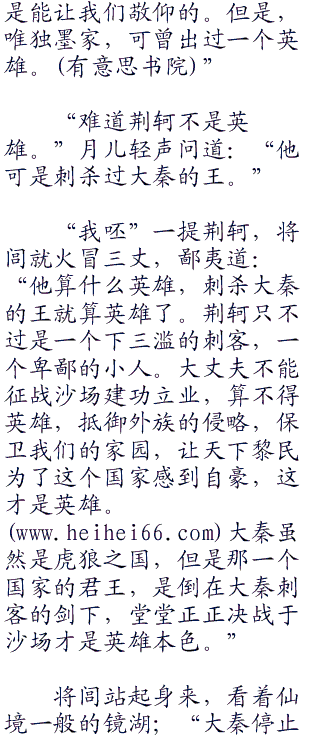 是能让我们敬仰的。但是，
唯独墨家，可曾出过一个英
雄。(有意思书院)”
“难道荆轲不是英
雄。”月儿轻声问道：“他
可是刺杀过大秦的王。”
“我呸”一提荆轲，将
闾就火冒三丈，鄙夷道：
“他算什么英雄，刺杀大秦
的王就算英雄了。荆轲只不
过是一个下三滥的刺客，一
个卑鄙的小人。大丈夫不能
征战沙场建功立业，算不得
英雄，抵御外族的侵略，保
卫我们的家园，让天下黎民
为了这个国家感到自豪，这
才是英雄。
(www.heihei66.com)大秦虽
然是虎狼之国，但是那一个
国家的君王，是倒在大秦刺
客的剑下，堂堂正正决战于
沙场才是英雄本色。”
将闾站起身来，看着仙
境一般的镜湖；“大秦停止